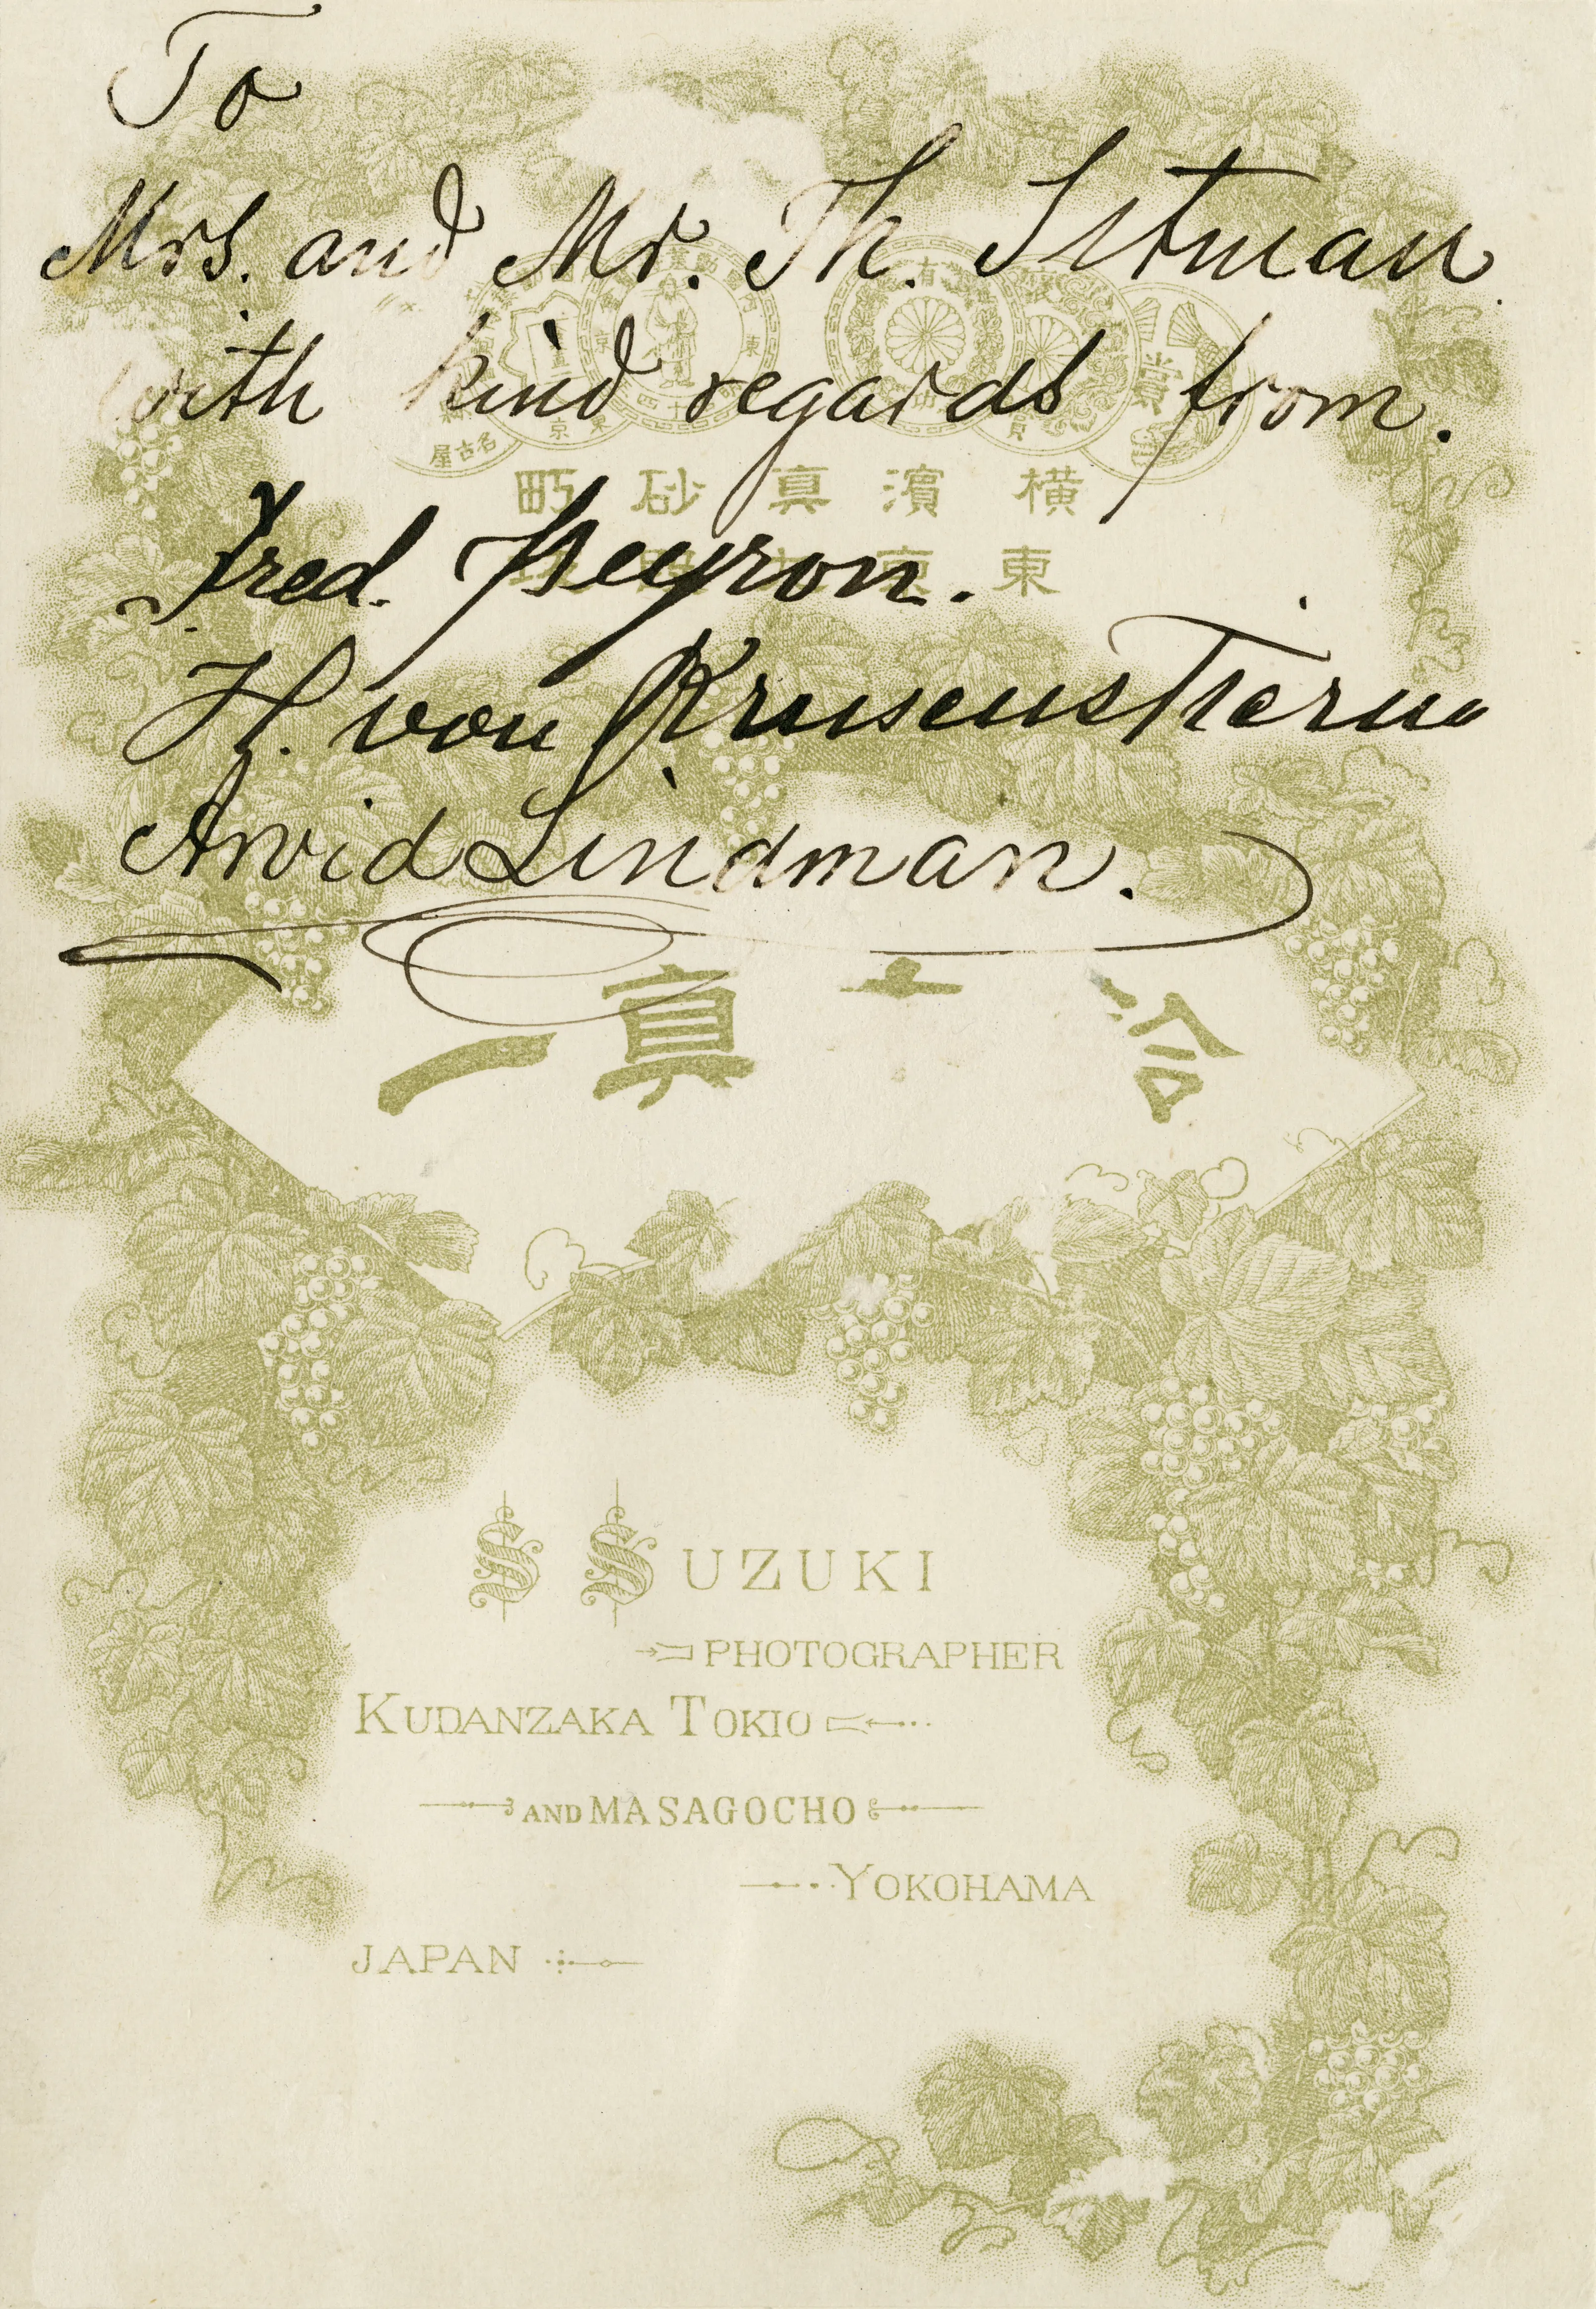 To
Mrs. and Mr. Th. Sitman
with kind regards from.
Fred. Peyron.
H. von Krusenstierna
Arvid Lindman.
名古屋
横濱真砂町
東京九段坂
真一
S SUZUKI
PHOTOGRAPHER
KUDANZAKA TOKIO
AND MASAGOCHO
YOKOHAMA
JAPAN